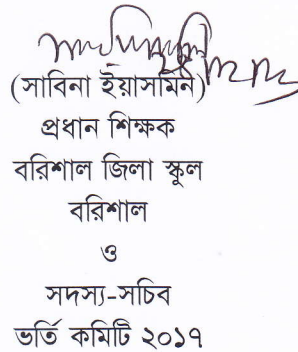 (সাবিনা ইয়াসমিন)
প্রধান শিক্ষক
বরিশাল জিলা স্কুল
বরিশাল
ও
সদস্য-সচিব
ভর্তি কমিটি ২০১৭